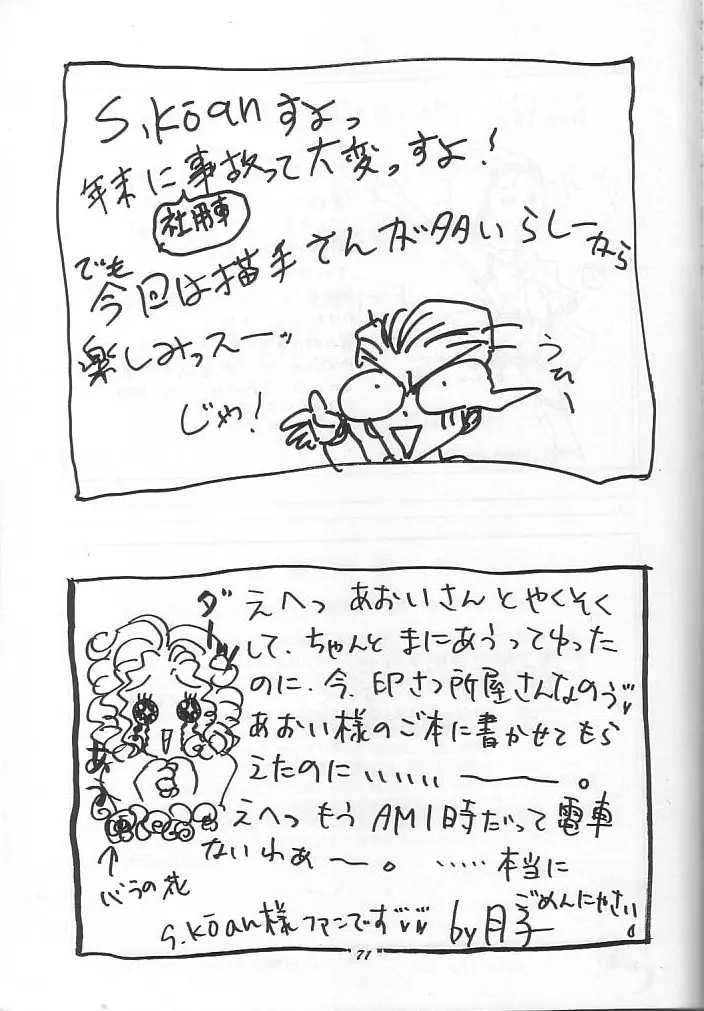 S.kōanすよっ
年末に事故って大変っすよ!
社用車
でも
今回は描手さんが多いらしーから
楽しみっスーッ
じゃ!
うひー
ダーッ
えへっ あおいさんとやくそく
して、ちゃんと まにあうってゆった
のに、今、印さつ所屋さんなのぅ゛
あおい様のご本に書かせてもら
えたのに、、、、、ー。
えへっ もう AM1時だって電車
ないわぁ〜。 ……本当に
ごめんにゃさい。
↑
バラの花
S.kōan様ファンです by月子
71